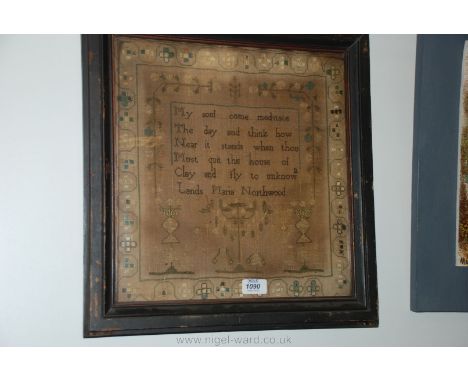 My soul come meditate
The day and think how
Near it stands when thou
Must quit this house of
Clay and fly to unknow
n
Lands Maria Northwood
1090
www.nigel-ward.co.uk